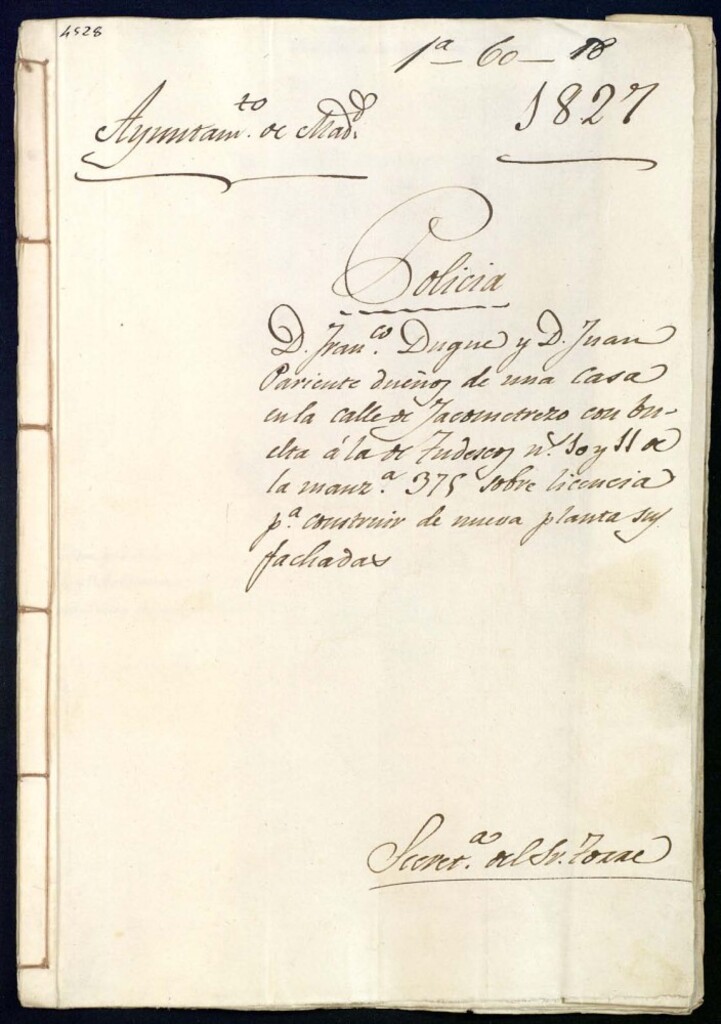 4528
1ª - 60 - 18
Ayuntamto. de Madd.
1827
Policia
D. Franco. Duque y D. Juan
Pariente dueños de una Casa
en la calle de Jacometrezo con bu-
elta á la de Tudescos ns. 10 y 11 de
la manza. 375 sobre licencia
pa. construir de nueva planta sus
fachadas
Secreta. del Sr. Torre